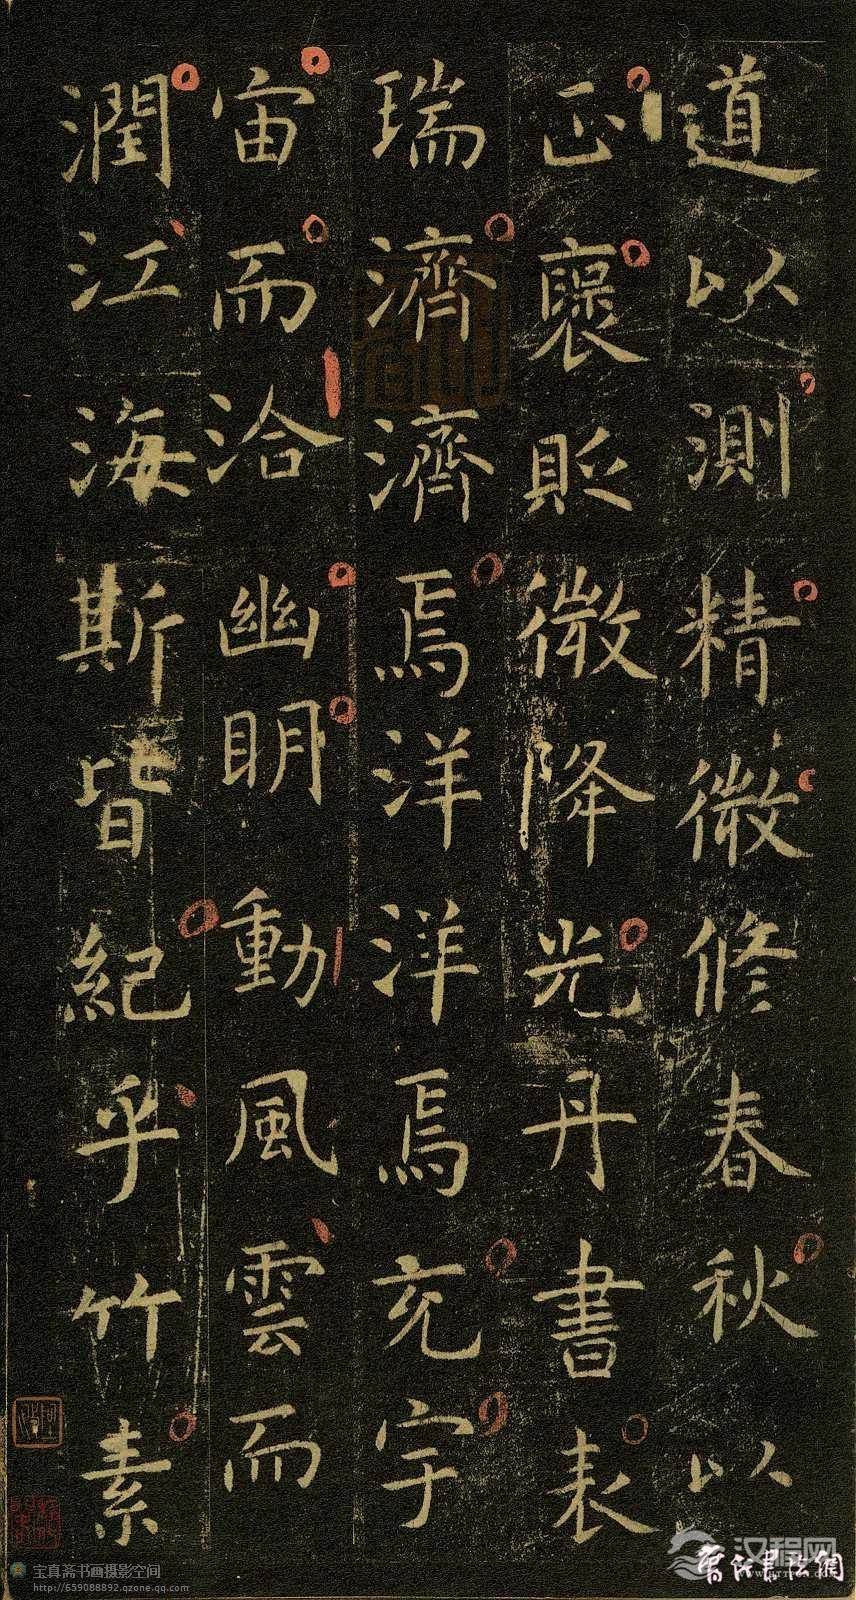 道以測精微修春秋以
正襃貶微降光丹書表
瑞濟濟焉洋洋焉充宇
宙而洽幽明動風雲而
潤江海斯皆紀乎竹素
宝真斋书画摄影空间
http://659088892.qzone.qq.com/
汉程网